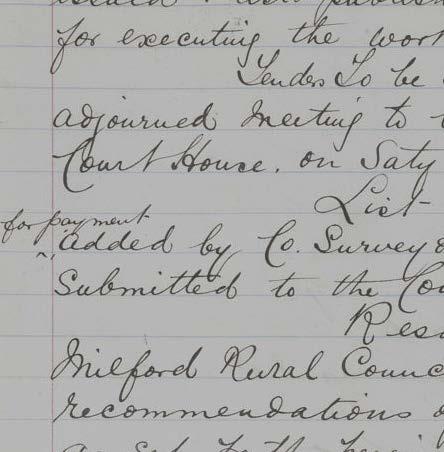 for executing the work
Tenders To be
adjourned Meeting to
Court House, on Saty
List
for payment
added by Co. Surveyo
Submitted to the Cou
Res
Milford Rural Counc
recommendations